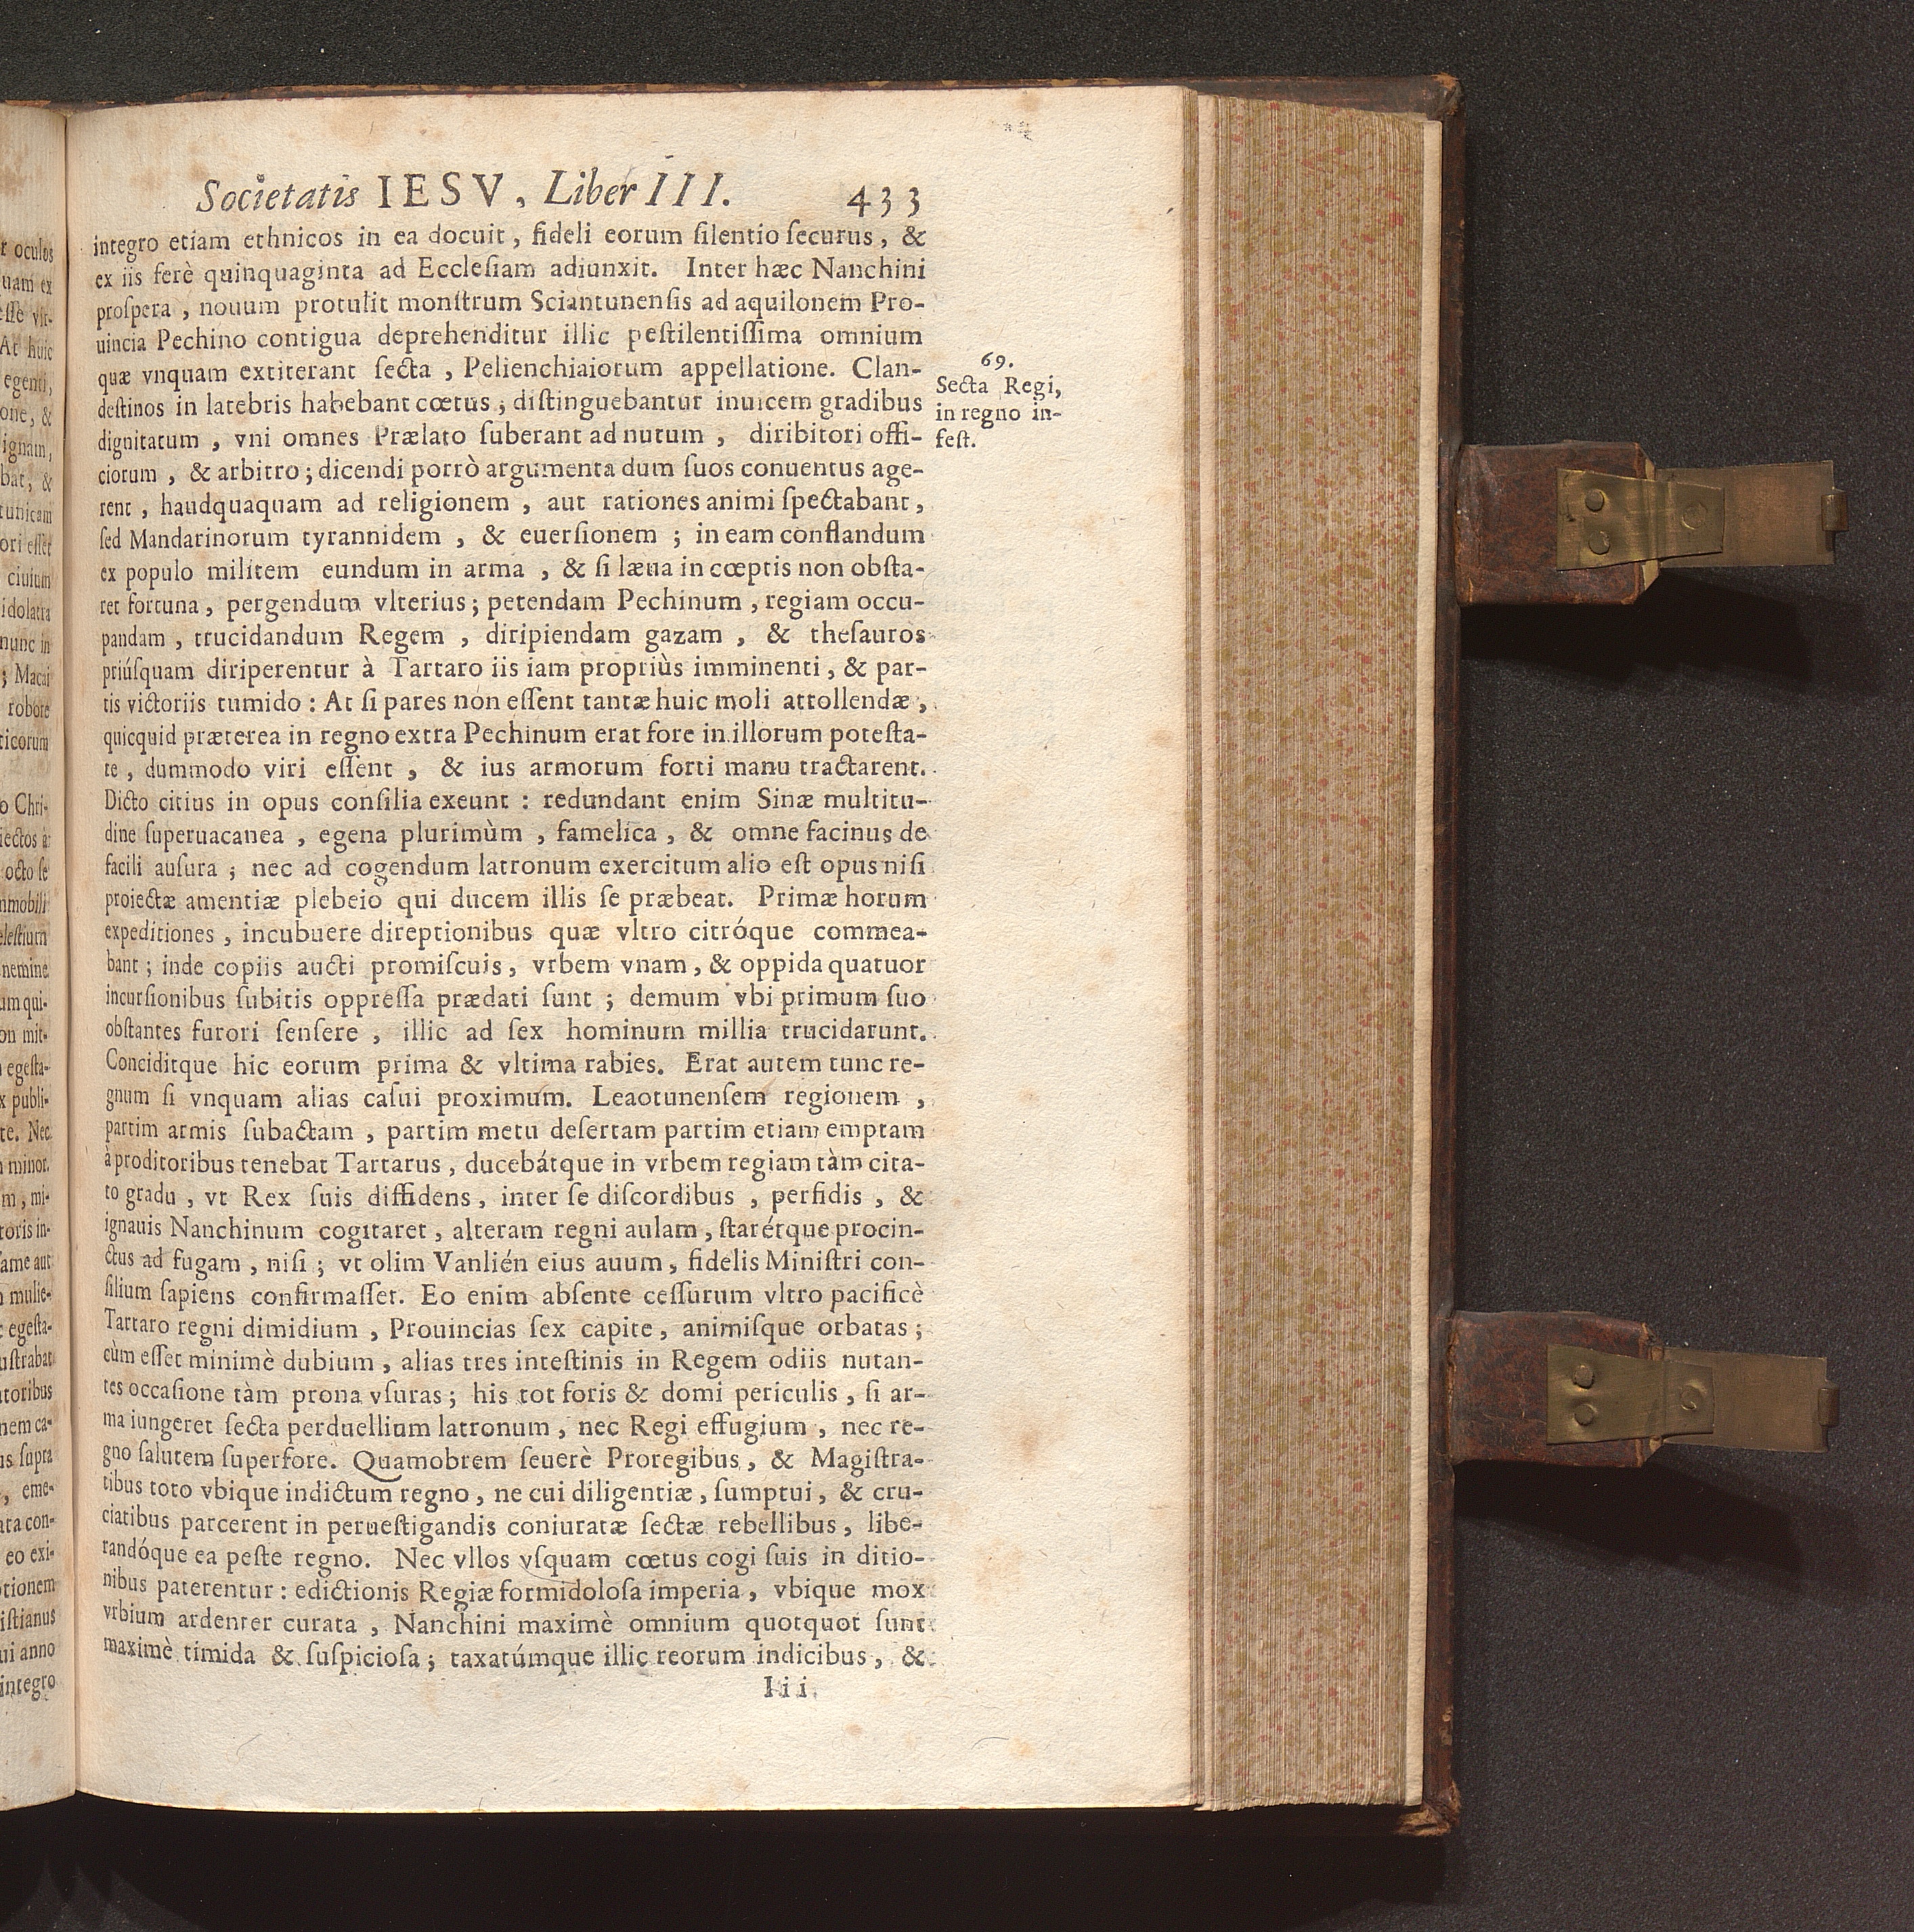 Societatis IESV, Liber III. 433
integro etiam ethnicos in ea docuit, fideli eorum ſilentio ſecurus, &
ex iis ferè quinquaginta ad Eccleſiam adiunxit. Inter hæc Nanchini
proſpera, nouum protulit monſtrum Sciantunenſis ad aquilonem Pro-
uincia Pechino contigua deprehenditur illic peſtilentiſſima omnium
quæ vnquam extiterant ſecta, Pelienchiaiorum appellatione. Clan-
deſtinos in latebris habebant cœtus; diſtinguebantur inuicem gradibus
dignitatum, vni omnes Prælato ſuberant ad nutum, diribitori offi-
ciorum, & arbitro; dicendi porrò argumenta dum ſuos conuentus age-
rent, haudquaquam ad religionem, aut rationes animi ſpectabant,
ſed Mandarinorum tyrannidem, & euerſionem; in eam conflandum
ex populo militem eundum in arma, & ſi læua in cœptis non obſta-
ret fortuna, pergendum vlterius; petendam Pechinum, regiam occu-
pandam, trucidandum Regem, diripiendam gazam, & theſauros
priúſquam diriperentur à Tartaro iis iam propriùs imminenti, & par-
tis victoriis tumido: At ſi pares non eſſent tantæ huic moli attollendæ,
quicquid præterea in regno extra Pechinum erat fore in illorum poteſta-
te, dummodo viri eſſent, & ius armorum forti manu tractarent.
Dicto citius in opus conſilia exeunt: redundant enim Sinæ multitu-
dine ſuperuacanea, egena plurimùm, famelica, & omne facinus de
facili auſura; nec ad cogendum latronum exercitum alio eſt opus niſi
proiectæ amentiæ plebeio qui ducem illis ſe præbeat. Primæ horum
expeditiones, incubuere direptionibus quæ vltro citróque commea-
bant; inde copiis aucti promiſcuis, vrbem vnam, & oppida quatuor
incurſionibus ſubitis oppreſſa prædati ſunt; demum vbi primum ſuo
obſtantes furori ſenſere, illic ad ſex hominum millia trucidarunt.
Conciditque hic eorum prima & vltima rabies. Erat autem tunc re-
gnum ſi vnquam alias caſui proximum. Leaotunenſem regionem,
partim armis ſubactam, partim metu deſertam partim etiam emptam
à proditoribus tenebat Tartarus, ducebátque in vrbem regiam tàm cita-
to gradu, vt Rex ſuis diffidens, inter ſe diſcordibus, perfidis, &
ignauis Nanchinum cogitaret, alteram regni aulam, ſtarétque procin-
ctus ad fugam, niſi; vt olim Vanlién eius auum, fidelis Miniſtri con-
ſilium ſapiens confirmaſſet. Eo enim abſente ceſſurum vltro pacificè
Tartaro regni dimidium, Prouincias ſex capite, animiſque orbatas;
cùm eſſet minimè dubium, alias tres inteſtinis in Regem odiis nutan-
tes occaſione tàm prona vſuras; his tot foris & domi periculis, ſi ar-
ma iungeret ſecta perduellium latronum, nec Regi effugium, nec re-
gno ſalutem ſuperfore. Quamobrem ſeuerè Proregibus, & Magiſtra-
tibus toto vbique indictum regno, ne cui diligentiæ, ſumptui, & cru-
ciatibus parcerent in perueſtigandis coniuratæ ſectæ rebellibus, libe-
randóque ea peſte regno. Nec vllos vſquam cœtus cogi ſuis in ditio-
nibus paterentur: edictionis Regiæ formidoloſa imperia, vbique mox
vrbium ardenter curata, Nanchini maximè omnium quotquot ſunt
maximè timida & ſuſpicioſa; taxatúmque illic reorum indicibus, &
Iii
69.
Secta Regi,
in regno in-
feſt.